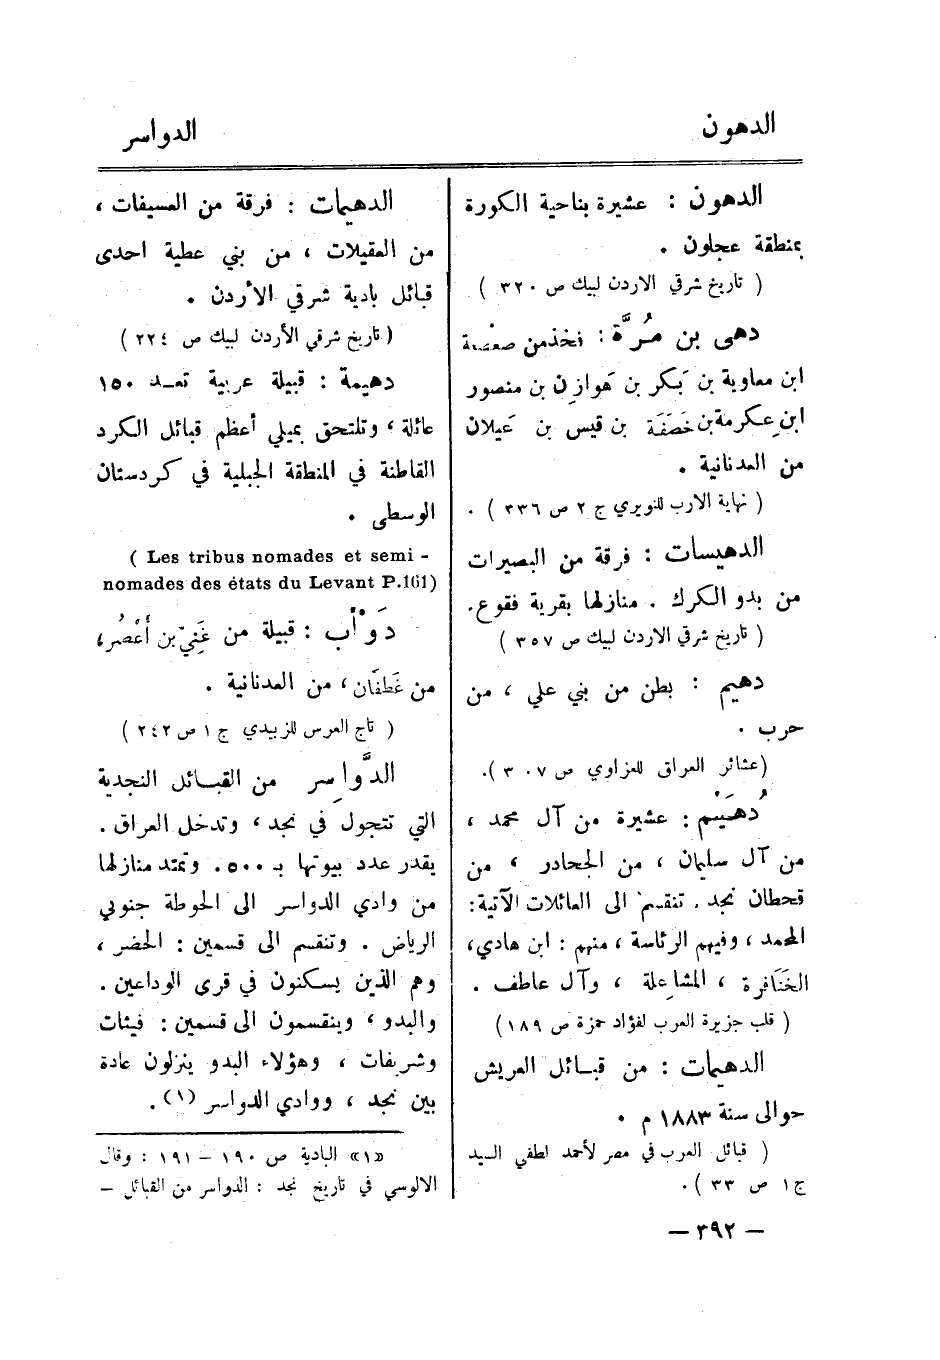 الدهون
الدواسر
الدهون : عشيرة بناحية الكورة
بمنطقة عجلون .
( تاريخ شرقي الاردن لبيك ص ٣٢٠ )
دهى بن مُرَّة : فخذ من صعصعة
ابن معاوية بن بَكر بن هَوازِن بن منصور
ابن عِكرمة بن خَصَفَة بن قيس بن عَيلان
من العدنانية .
( نهاية الارب للنويري ج ٢ ص ٣٣٦ ) .
الدهيسات : فرقة من البصيرات
من بدو الكرك . منازلها بقرية فقوع.
( تاريخ شرقي الاردن لبيك ص ٣٥٧ )
دهيم : بطن من بني علي ، من
حرب .
(عشائر العراق للعزاوي ص ٣٠٧ ).
دُهَيْم : عشيرة من آل محمد ،
من آل سليمان ، من الجحادر ، من
قحطان نجد . تنقسم الى العائلات الآتية:
المحمد ، وفيهم الرئاسة ، منهم : ابن هادي،
الخَنَافرة ، المشاعلة ، وآل عاطف .
( قلب جزيرة العرب لفؤاد حمزة ص ١٨٩ )
الدهيمات : من قبائل العريش
حوالى سنة ١٨٨٣ م .
( قبائل العرب في مصر لأحمد لطفي السيد
ج ١ ص ٣٣ ) .
الدهيمات : فرقة من العسيفات ،
من العقيلات ، من بني عطية احدى
قبائل بادية شرقي الأردن .
( تاريخ شرقي الأردن لبيك ص ٢٢٤ )
دهيمة : قبيلة عربية تعد ١٥٠
عائلة ، وتلتحق بميلي أعظم قبائل الكرد
القاطنة في المنطقة الجبلية في كردستان
الوسطى .
( Les tribus nomades et semi -
nomades des états du Levant P.161)
دَوْأب : قبيلة من غَنِيّ بن أَعْصُر،
من غَطَفَان ، من العدنانية .
( تاج العرس للزبيدي ج ١ ص ٢٤٢ )
الدَّوَاسِر من القبائل النجدية
التي تتجول في نجد ، وتدخل العراق .
يقدر عدد بيوتها بـ ٥٠٠٠ . وتمتد منازلها
من وادي الدواسر الى الحوطة جنوبي
الرياض . وتنقسم الى قسمين : الحضر ،
وهم الذين يسكنون في قرى الوداعين .
والبدو ، وينقسمون الى قسمين : فيئات
وشريفات ، وهؤلاء البدو ينزلون عادة
بين نجد ، ووادي الدواسر (١) .
«١» البادية ص ١٩٠ – ١٩١ : وقال
الالوسي في تاريخ نجد : الدواسر من القبائل –
— ٣٩٢ —